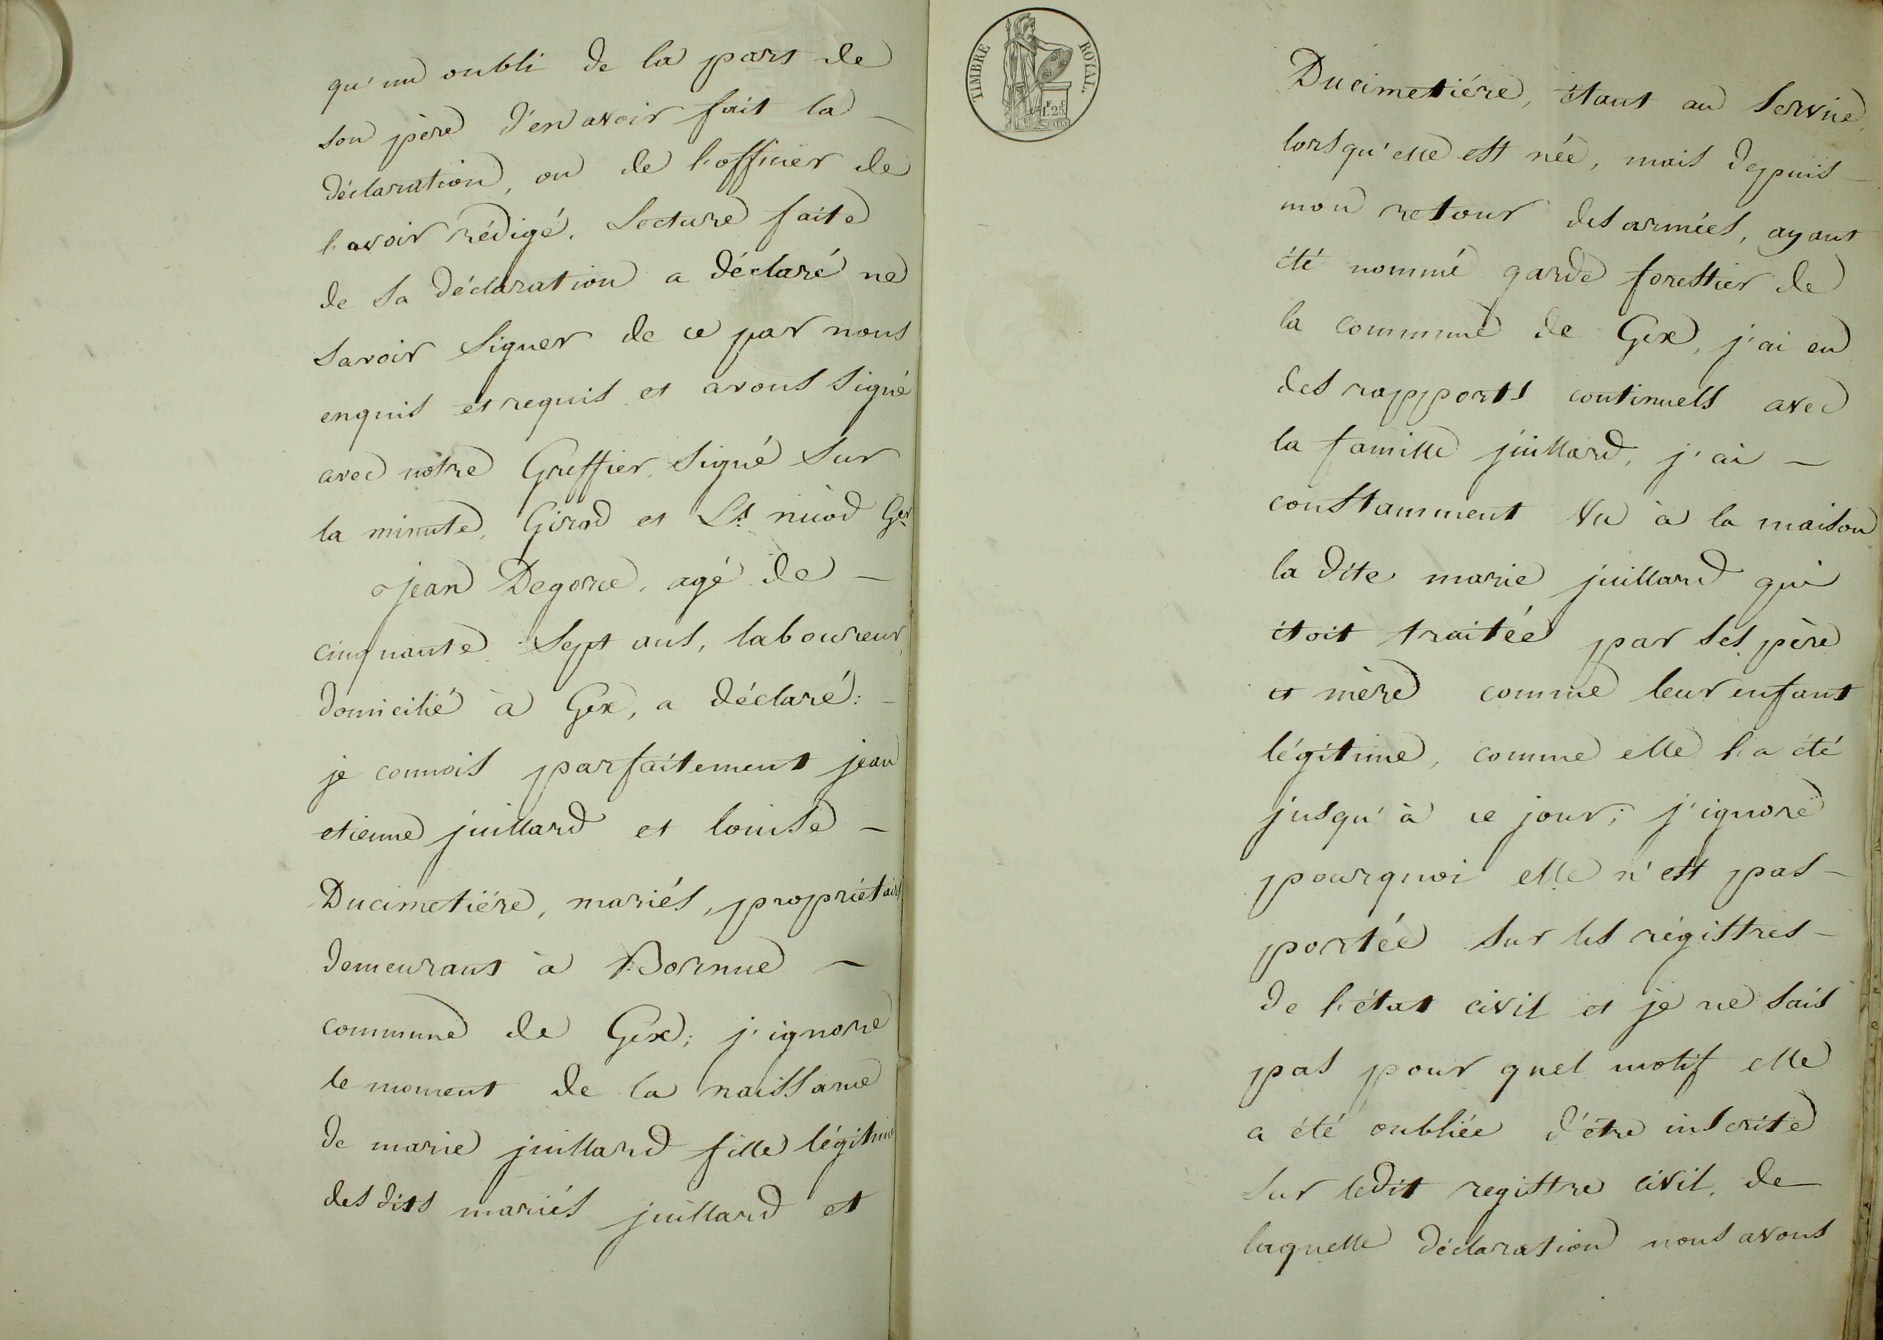 qu'un oubli de la part de
son père d'en avoir fait la –
déclaration, ou de l'officier de
l'avoir rédigé. Lecture faite
de sa déclaration a déclaré ne
savoir signer de ce par nous
enquis et requis et avons signé
avec nôtre Greffier, signé sur
la minute, Girod et Ls. nicod Ger
jean Degorce, agé de –
cinquante sept ans, laboureur,
domicilié à Gex, a déclaré: –
je connois parfaitement jean
etienne juillard et louise –
Ducimetiére, mariés, propriétaires
demeurant à
commune de Gex; j'ignore
le moment de la naissance
de marie juillard fille légitime
des dits mariés juillard et
TIMBRE ROYAL.
Ducimetiére, étant au service,
lorsqu'elle est née, mais depuis –
mon retour des armées, ayant
été nommé garde forestier de
la commune de Gex, j'ai eu
des rapports continuels avec
la famille juillard, j'ai –
constamment vu à la maison
la dite marie juillard qui
étoit traitée par ses père
et mère comme leur enfant
légitime, comme elle l'a été
jusqu'à ce jour; j'ignore
pourquoi elle n'est pas –
portée sur les régistres –
de l'état civil et je ne sais
pas pour quel motif elle
a été oubliée d'être inscrite
sur ledit registre civil. de
laquelle déclaration nous avons